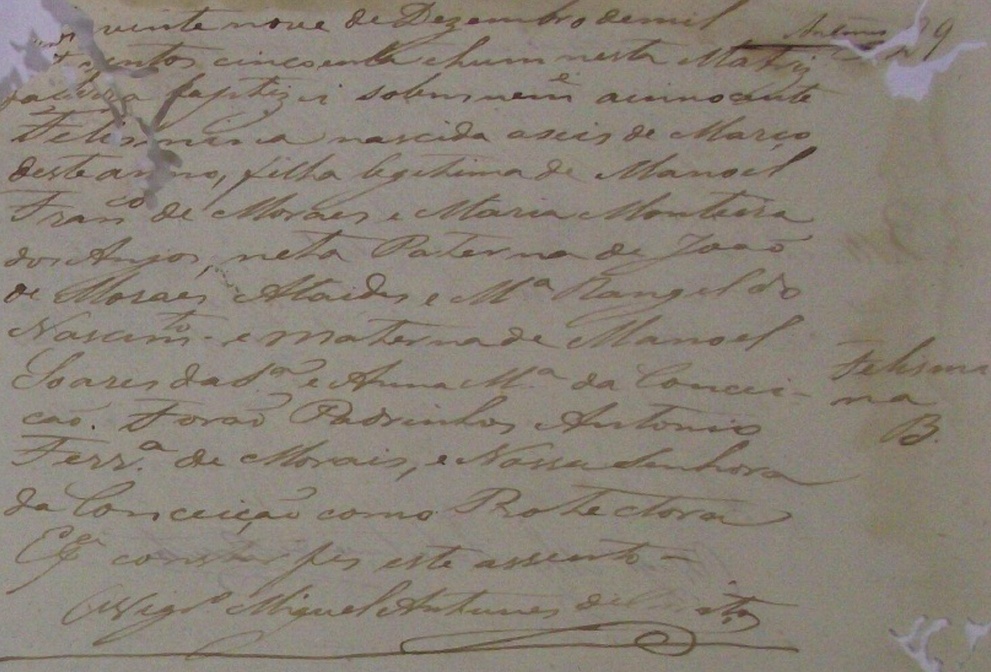 vinte nove de Dezembro de mil
Antunes 39
centos cincoenta e hum nesta Matriz
baptizei solemnem.e a innocente
Felismina nascida a seis de Março
deste anno, filha legitima de Manoel
Fran.co de Moraes e Maria Monteira
dos Anjos, neta Paterna de João
de Moraes Ataides e M.a Rangel do
Nascim.to e materna de Manoel
Soares da S.a e Anna M.a da Concei-
cão. Forão Padrinhos Antonio
Ferr.a de Morais, e Nossa Senhora
da Conceição como Protectora
E p.a constar fis este assento -
O Vigr.o Miguel Antunes de
Felismi
na
B.